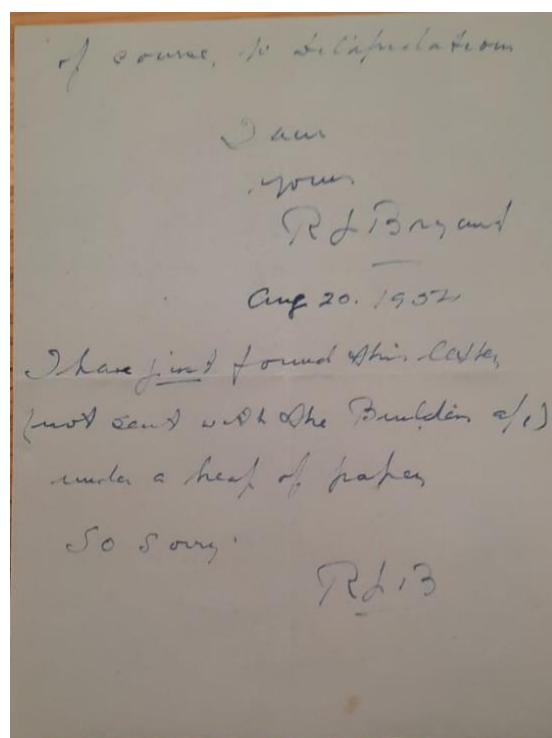 of course, to dilapidations
I am
yours
R L Bryant
Aug 20. 1952
I have just found this letter
(not sent with the Builders a/c)
under a heap of papers
So sorry.
R L B